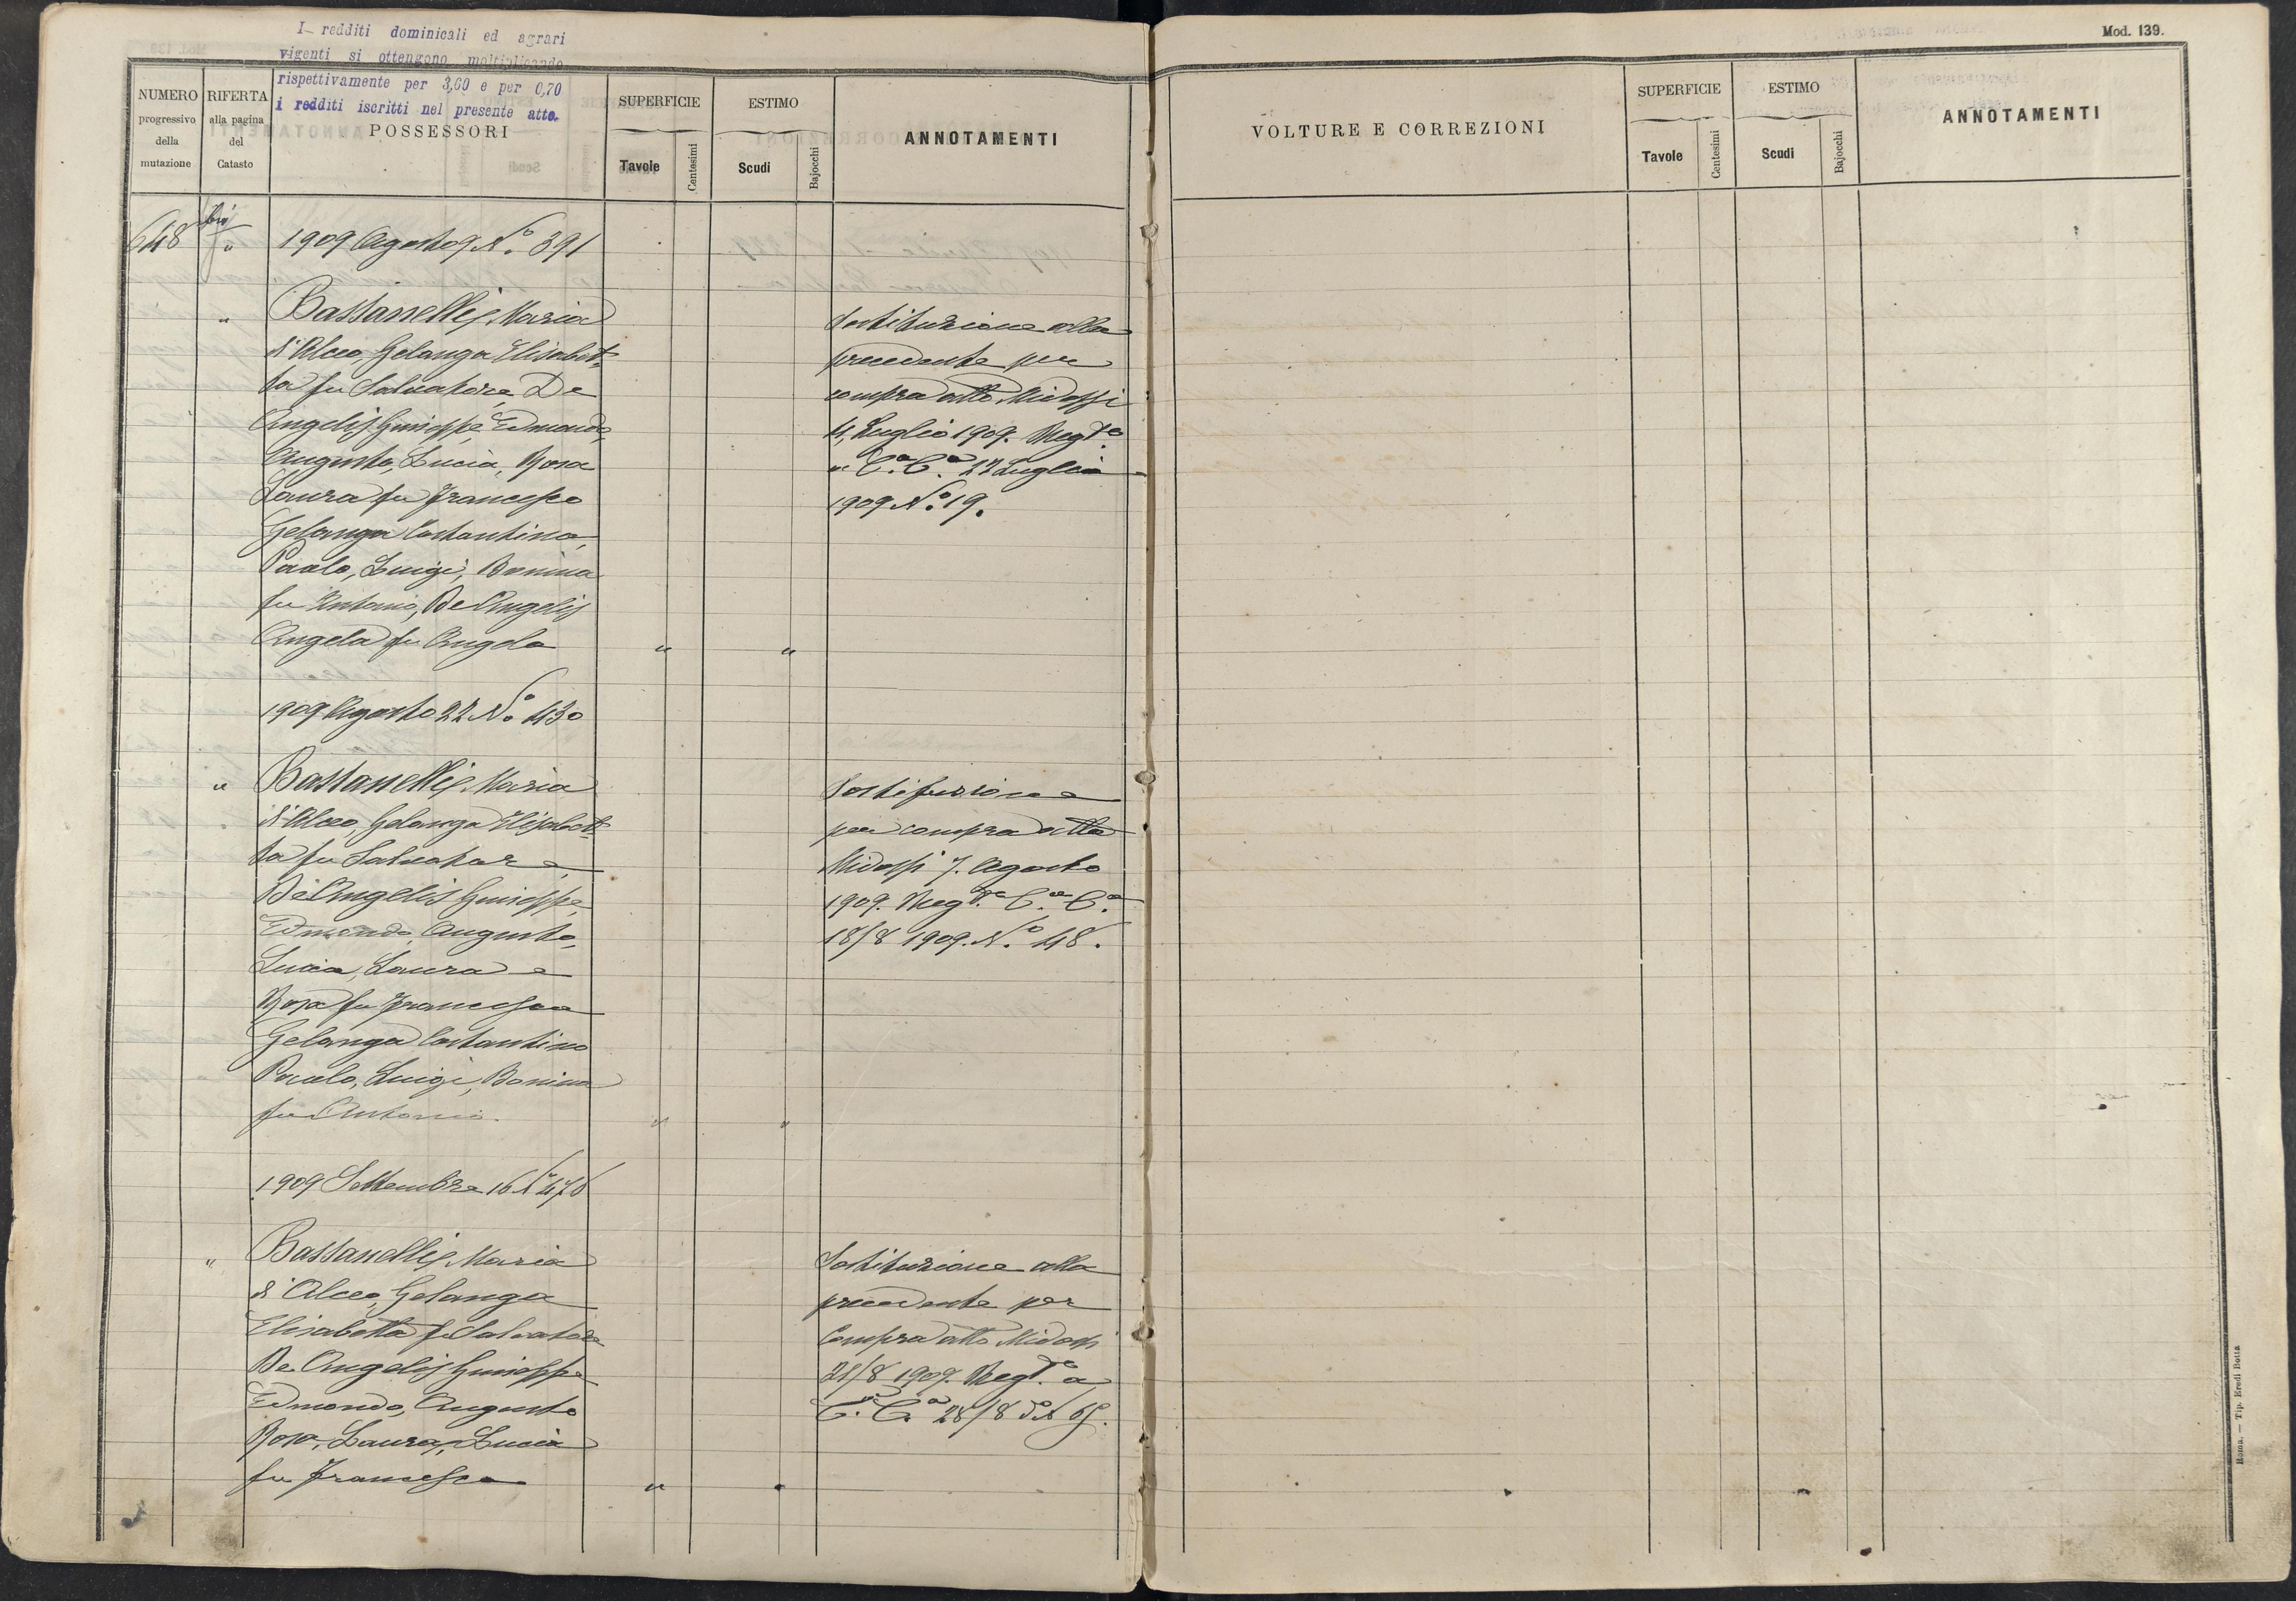 I redditi dominicali ed agrari
vigenti si ottengono moltiplicando
rispettivamente per 3,60 e per 0,70
i redditi iscritti nel presente atto.
Mod. 139.
NUMERO progressivo della mutazione
RIFERTA alla pagina del Catasto
POSSESSORI
SUPERFICIE
Tavole
Centesimi
ESTIMO
Scudi
Bajocchi
ANNOTAMENTI
VOLTURE E CORREZIONI
SUPERFICIE
Tavole
Centesimi
ESTIMO
Scudi
Bajocchi
ANNOTAMENTI
648 bis
1909 Agosto 9 N.º 391
" Bassanellis Maria
d'Alceo Gelanga Elisabet=
ta fu Salvatore, De
Angelis Giuseppe, Edmondo,
Augusto, Lucia, Rosa
Laura fu Francesco
Gelanga Costantino,
Paolo, Luigi, Bonina
fu Antonio, De Angelis
Angela fu Angelo " "
Sostituzione alla
precedente per
compra atto Midossi
4, Luglio 1909. Regto
a C.a C.a 17 Luglio
1909 N.º 19.
1909 Agosto 22 N.º 430
" Bassanellis Maria
d'Alceo, Gelanga Elisabet=
ta fu Salvatore,
De Angelis Giuseppe,
Edmondo, Augusto,
Lucia, Laura e
Rosa fu Francesco
Gelanga Costantino
Paolo, Luigi, Bonina
fu Antonio. " "
Sostituzione
per compra atto
Midossi 7. Agosto
1909. Regto C.a C.a
18/8 1909. N.º 48.
1909 Settembre 16 N 476
" Bassanellis Maria
d'Alceo, Gelanga
Elisabetta fu Salvatore
De Angelis Giuseppe
Edmondo, Augusto
Rosa, Laura, Lucia
fu Francesco " "
Sostituzione alla
precedente per
Compra atto Midossi
21/8 1909. Regto a
C.a C.a 28/8 do N 65.
Roma. — Tip. Eredi Botta